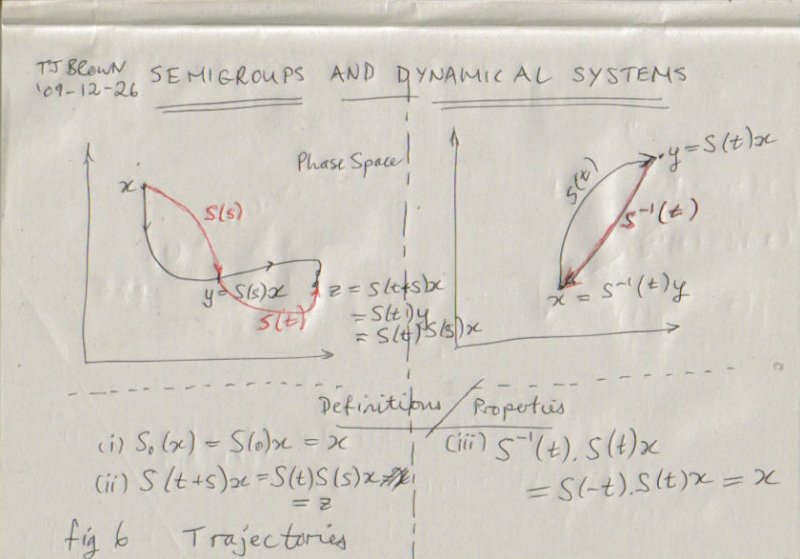 TJ BROWN
'09-12-26
SEMIGROUPS AND DYNAMICAL SYSTEMS
Phase Space
x
S(s)
y = S(s)x
S(t)
z = S(t+s)x
= S(t)y
= S(t) S(s)x
y = S(t)x
S(t)
S⁻¹(t)
x = S⁻¹(t)y
Definitions / Properties
(i) S₀(x) = S(0)x = x
(ii) S(t+s)x = S(t)S(s)x
= z
(iii) S⁻¹(t). S(t)x
= S(-t). S(t)x = x
fig 6 Trajectories